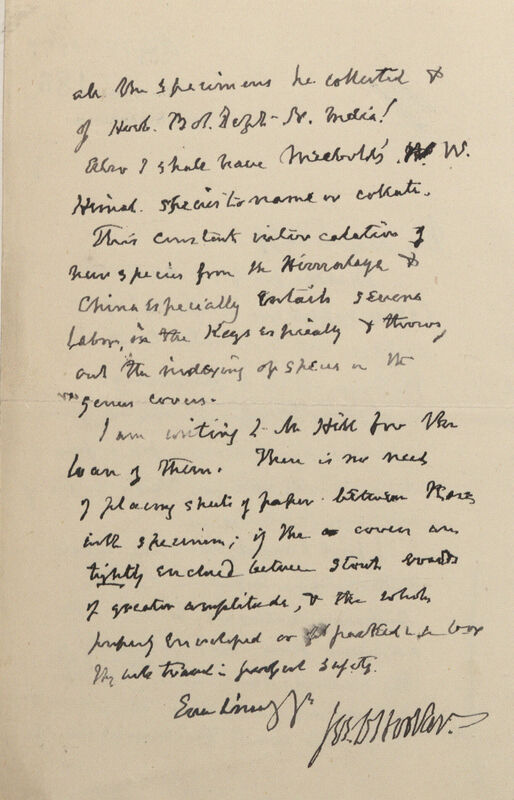 all the specimens he collected &
of Herb. Bot. Dept. Br. India!
Also I shall have Meebold's W.
Himal. species to name or collate.
This constant intercalation of
new species from the Himalaya &
China especially entails severe
labor, in the Keys especially & throws
out the indexing of species on the
genus covers.
I am writing to Mr Hill for the
loan of them. There is no need
of placing sheets of paper between those
with specimens; if the covers are
tightly enclosed between stout boards
of greater amplitude, & the whole
properly enveloped or packed in a box
they will travel in perfect safety.
Ever sincerely yrs
Jos. D Hooker.